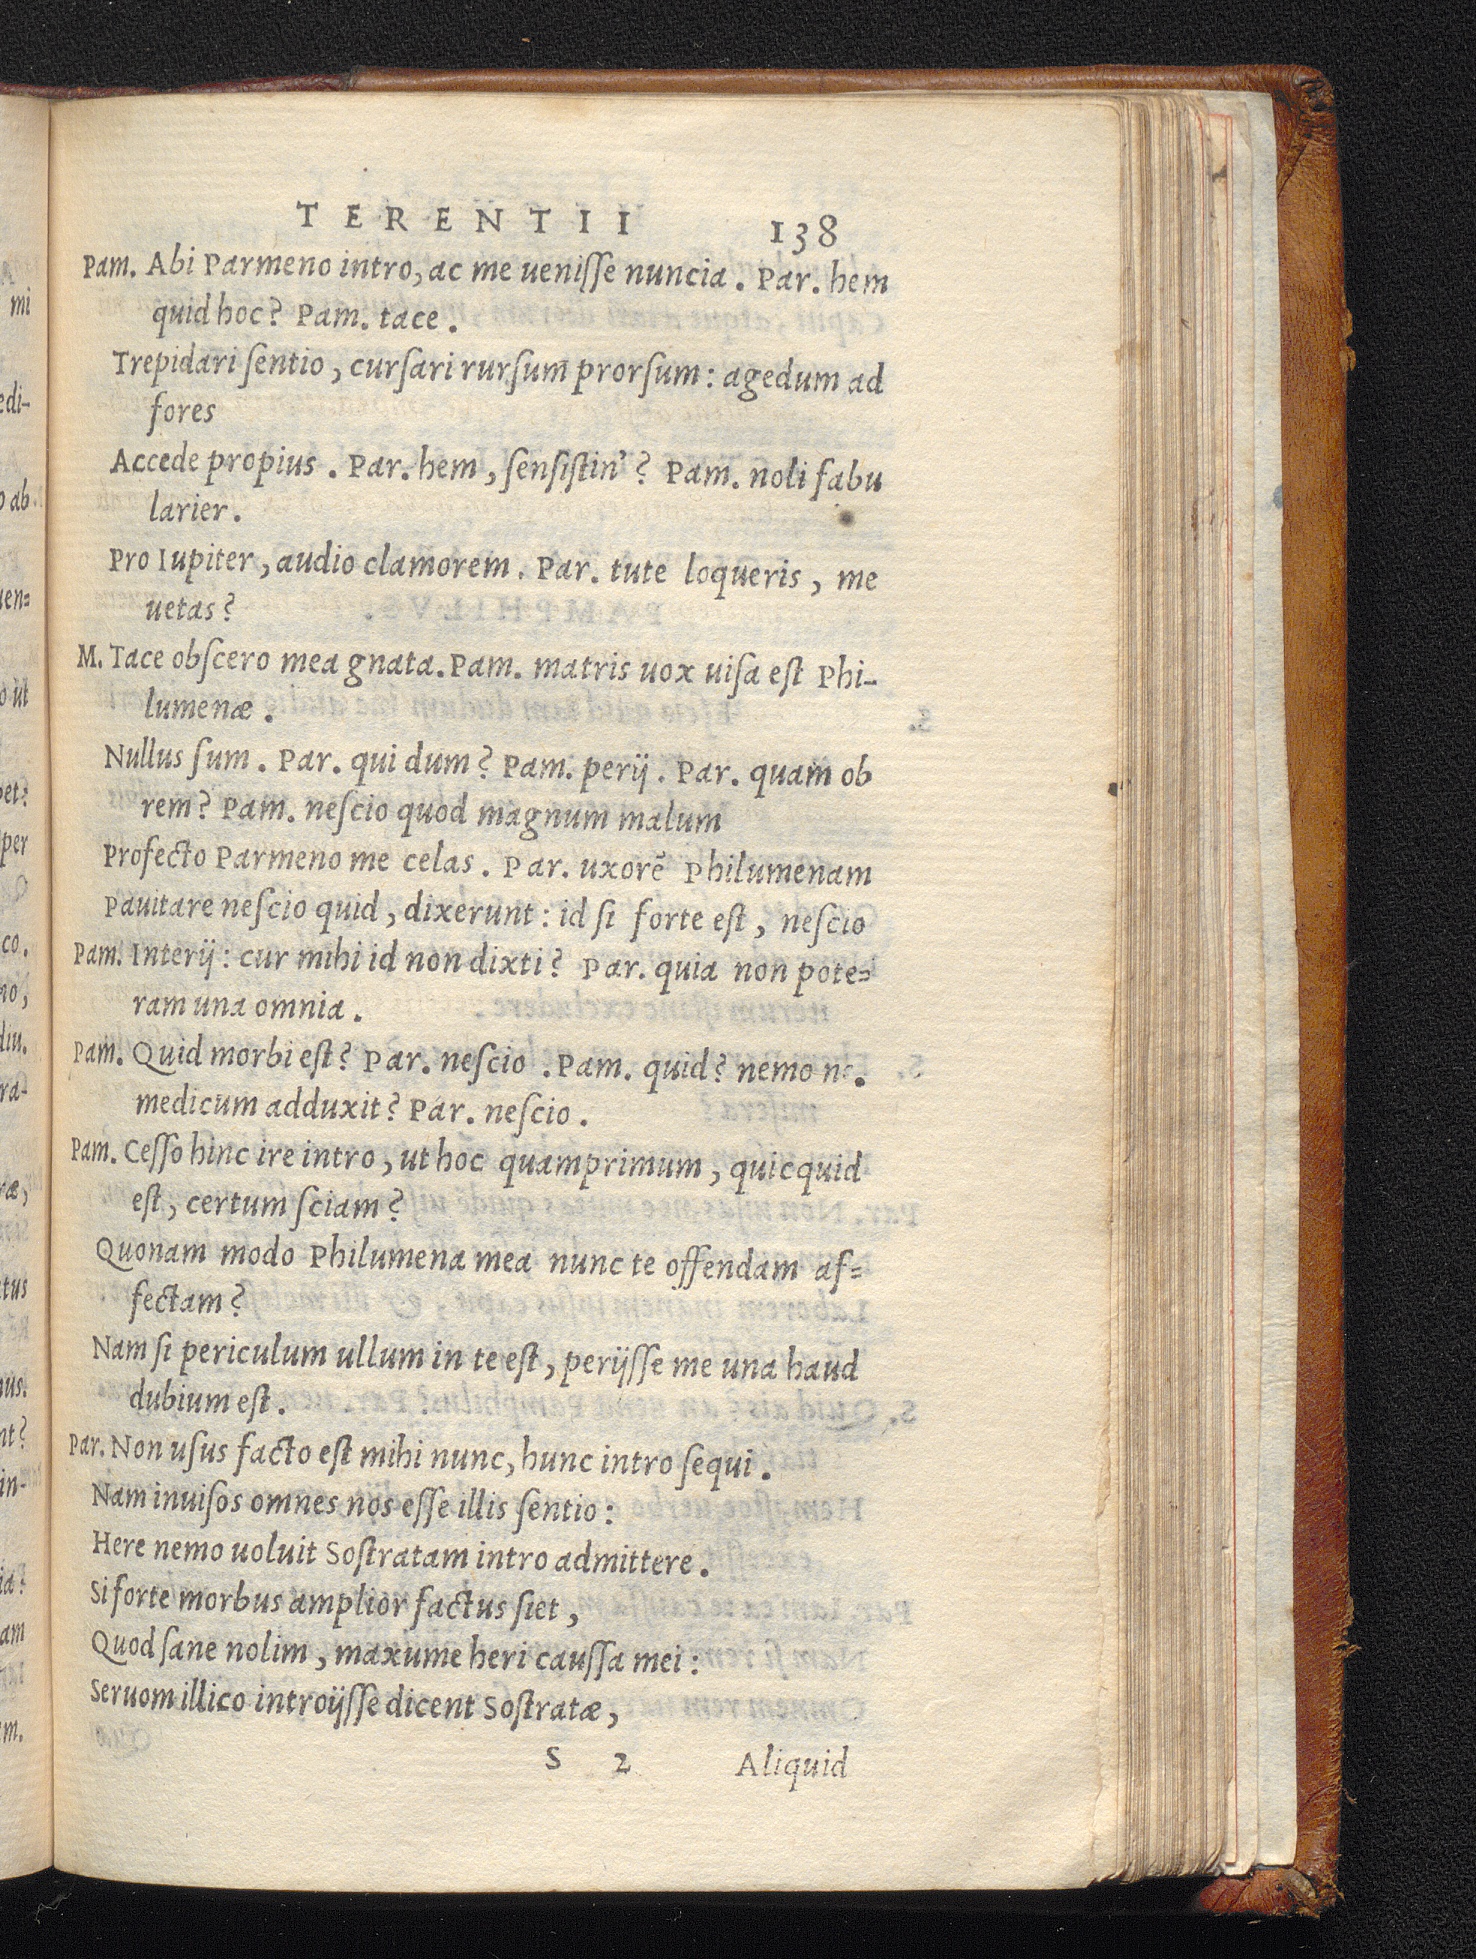 TERENTII 138
Pam. Abi Parmeno intro, ac me ueniſſe nuncia. Par. hem
quid hoc? Pam. tace.
Trepidari ſentio, curſari rurſum prorſum: agedum ad
fores
Accede propius. Par. hem, ſenſiſtin'? Pam. noli fabu
larier.
Pro Iupiter, audio clamorem. Par. tute loqueris, me
uetas?
M. Tace obſcero mea gnata. Pam. matris uox uiſa eſt Phi-
lumenæ.
Nullus ſum. Par. qui dum? Pam. perij. Par. quam ob
rem? Pam. neſcio quod magnum malum
Profecto Parmeno me celas. Par. uxorē Philumenam
Pauitare neſcio quid, dixerunt: id ſi forte eſt, neſcio
Pam. Interij: cur mihi id non dixti? Par. quia non pote=
ram una omnia.
Pam. Quid morbi eſt? Par. neſcio. Pam. quid? nemo
medicum adduxit? Par. neſcio.
Pam. Ceſſo hinc ire intro, ut hoc quamprimum, quicquid
eſt, certum ſciam?
Quonam modo Philumena mea nunc te offendam af=
fectam?
Nam ſi periculum ullum in te eſt, perijſſe me una haud
dubium eſt.
Par. Non uſus facto eſt mihi nunc, hunc intro ſequi.
Nam inuiſos omnes nos eſſe illis ſentio:
Here nemo uoluit Soſtratam intro admittere.
Si forte morbus amplior factus ſiet,
Quod ſane nolim, maxume heri cauſſa mei:
Seruom illico introijſſe dicent Soſtratæ,
S 2 Aliquid